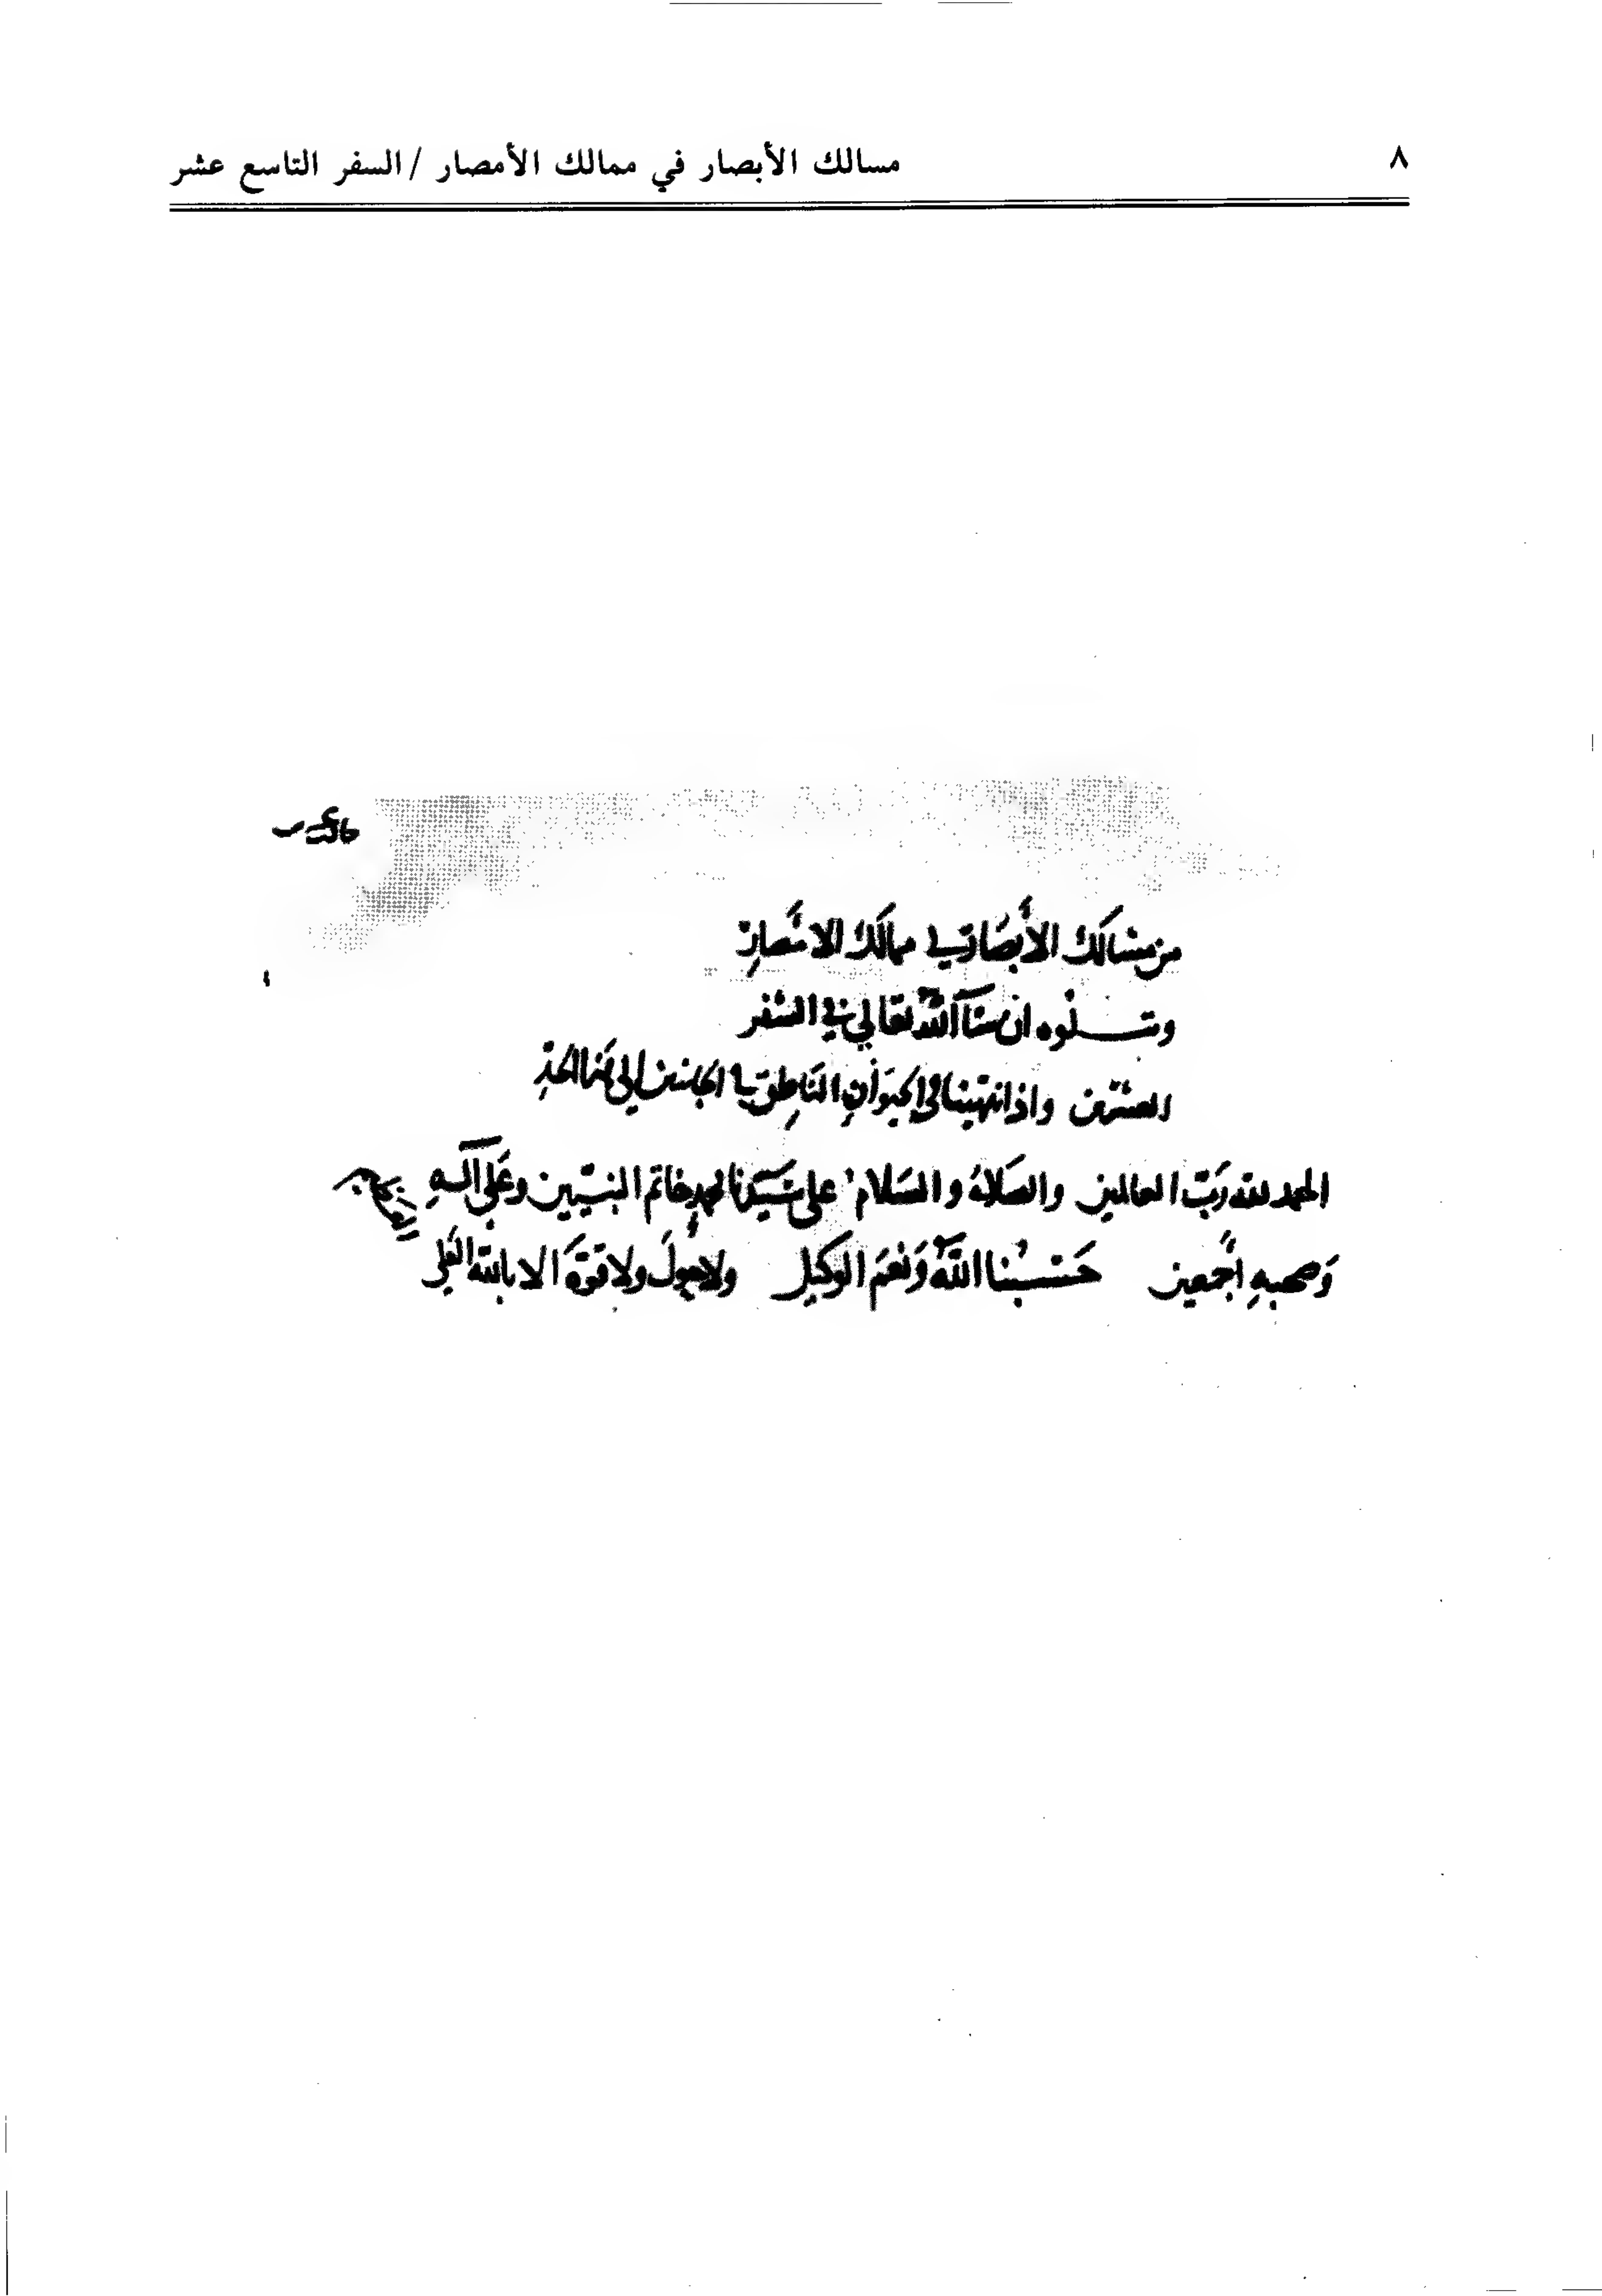 ٨
مسالك الأبصار في ممالك الأمصار / السفر التاسع عشر
من مسالك الأبصار في ممالك الامصار
ويتلوه ان شآ الله تعالى في السفر
العشرين واذ انتهينا في الحيوان الناطق في الجانبين إلى هنا الحد
الحمد لله رب العالمين والصلاة والسلام على سيدنا محمد خاتم النبيين وعلى آله
وصحبه أجمعين حسبنا الله ونعم الوكيل ولا حول ولا قوة الا بالله العلي
العظيم